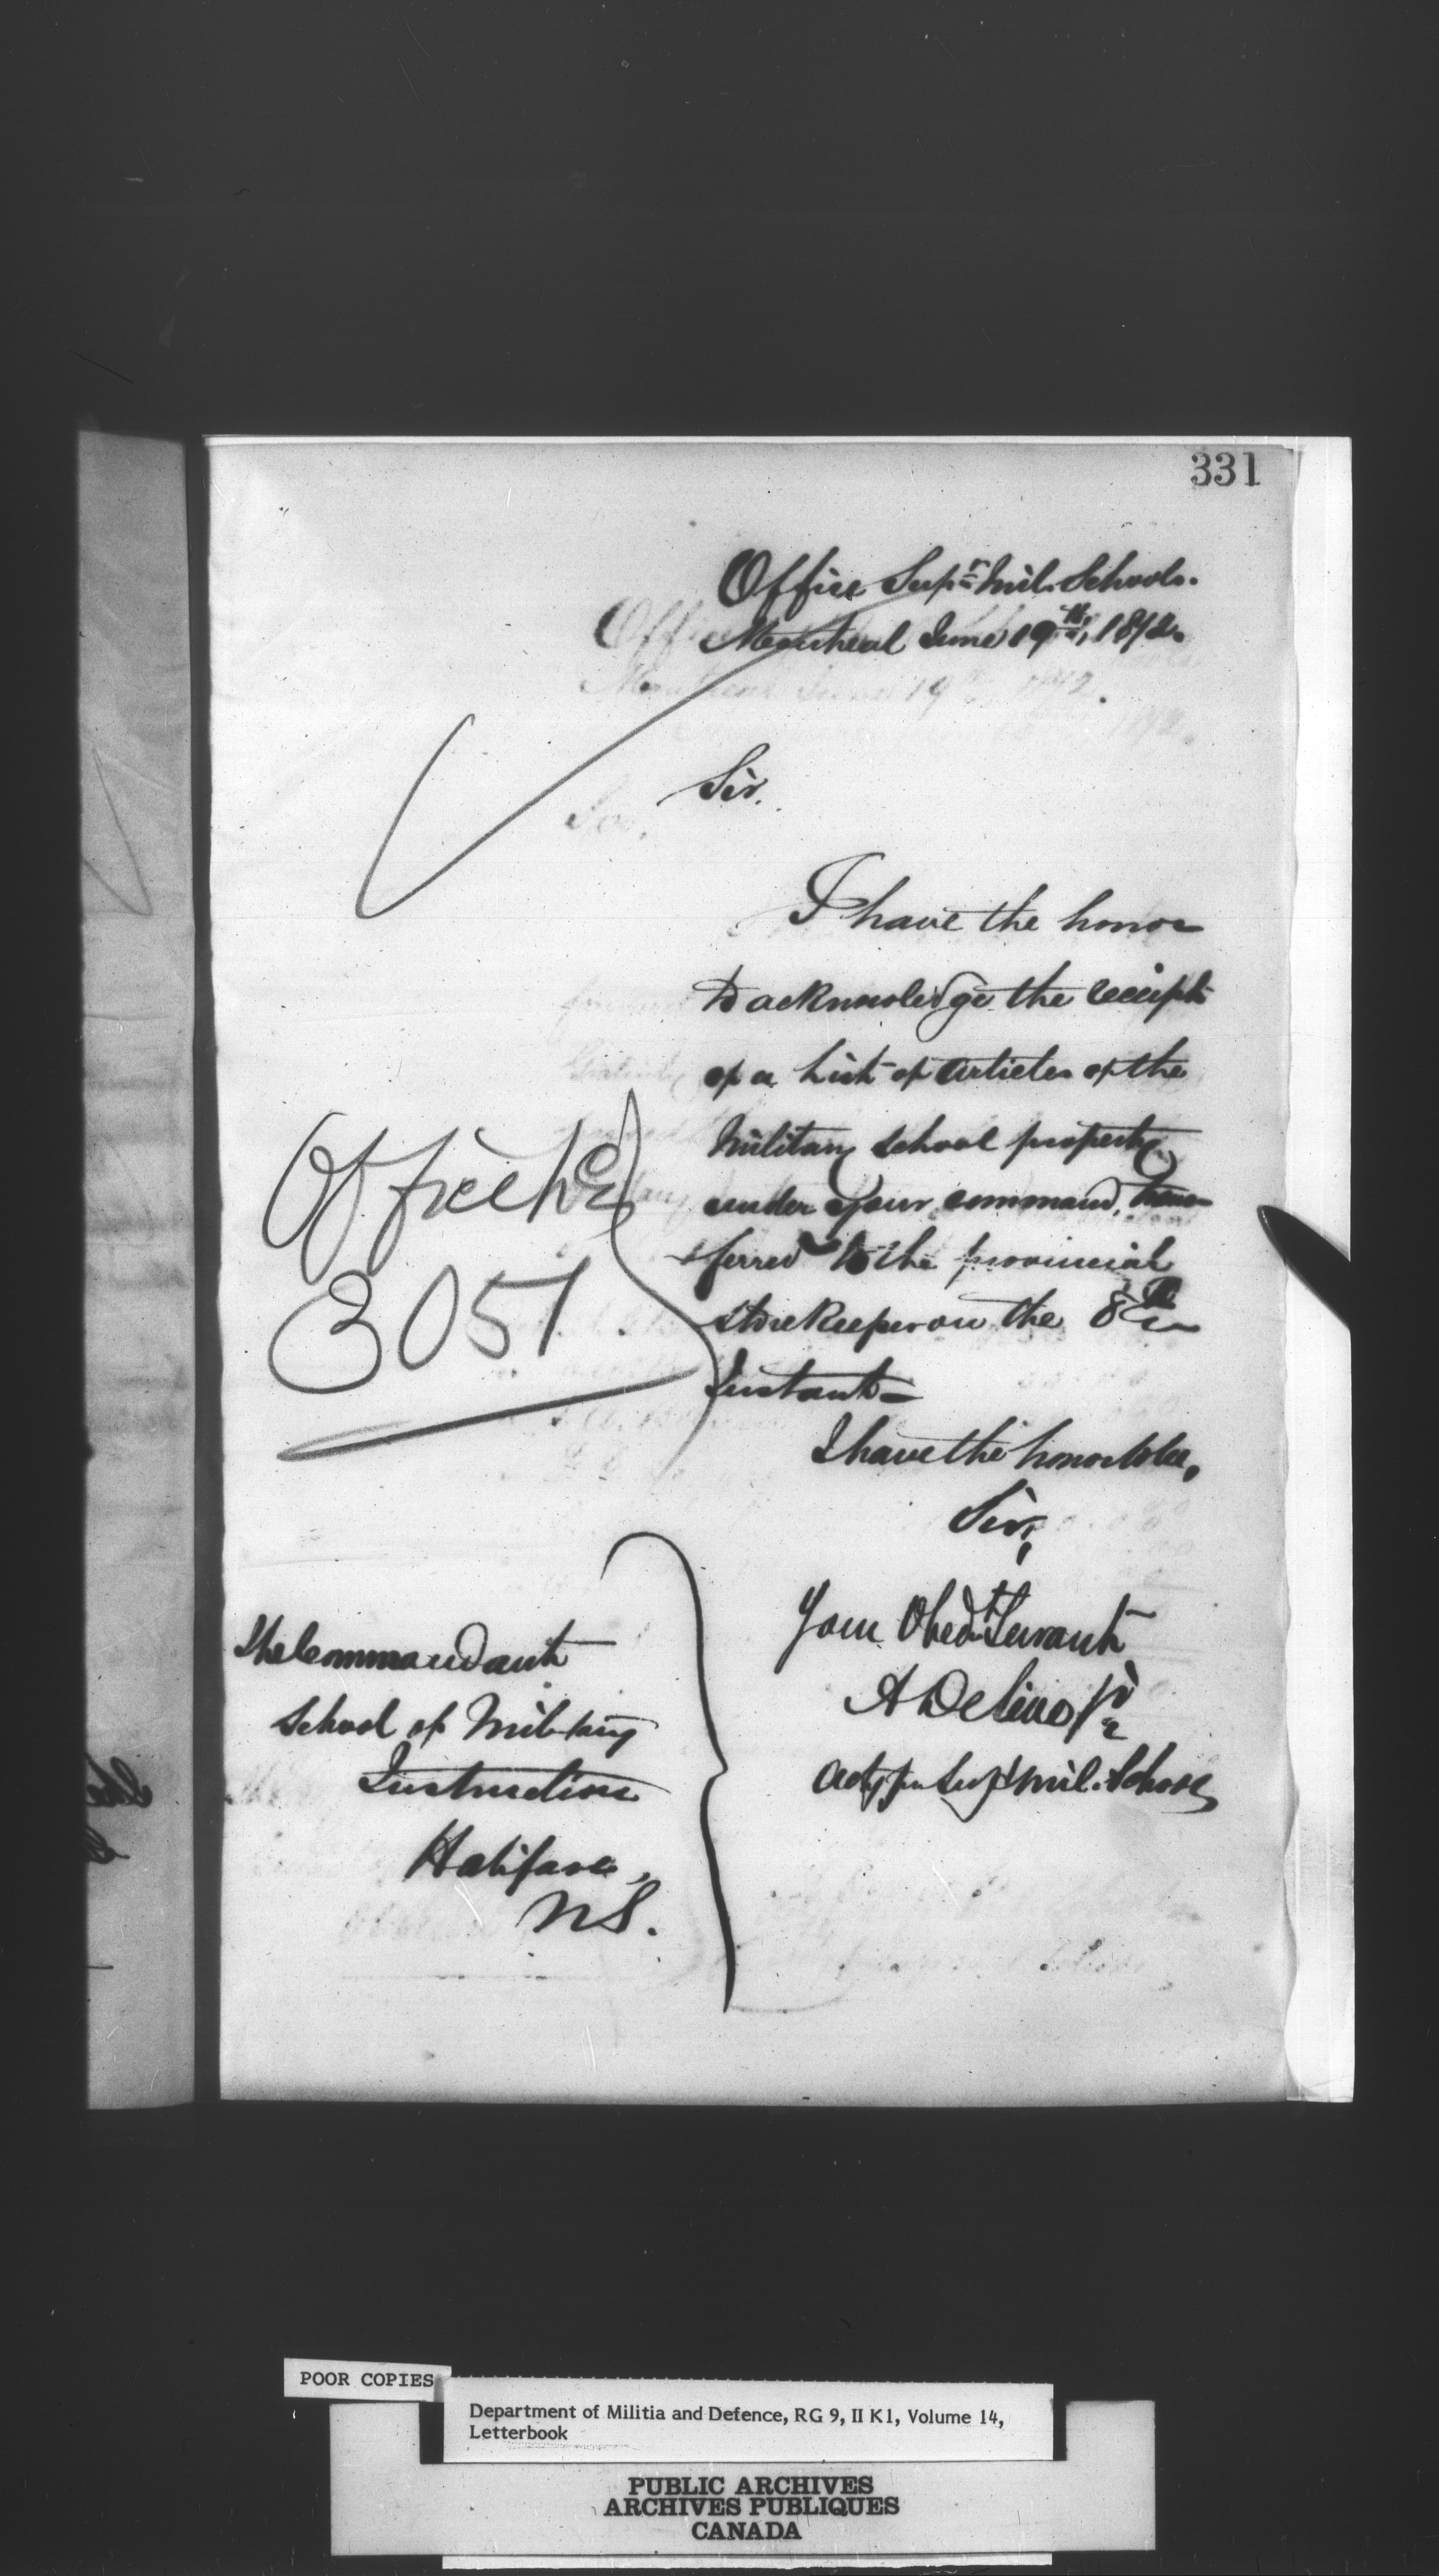 331
Office Supr. Mil. Schools.
Montreal June 19th, 1872.
Sir.
I have the honor
to acknowledge the receipt
of a List of Articles of the
Military School property
under your command, trans-
ferred to the provincial
storekeeper on the 8th
Instant-
Office No
3051.
I have the honor to be,
Sir,
Your Obedt. Servant
Actg for Supt Mil. Schools
The Commandant
School of Military
Instruction
Halifax,
NS.
POOR COPIES
Department of Militia and Defence, RG 9, II K1, Volume 14,
Letterbook
PUBLIC ARCHIVES
ARCHIVES PUBLIQUES
CANADA